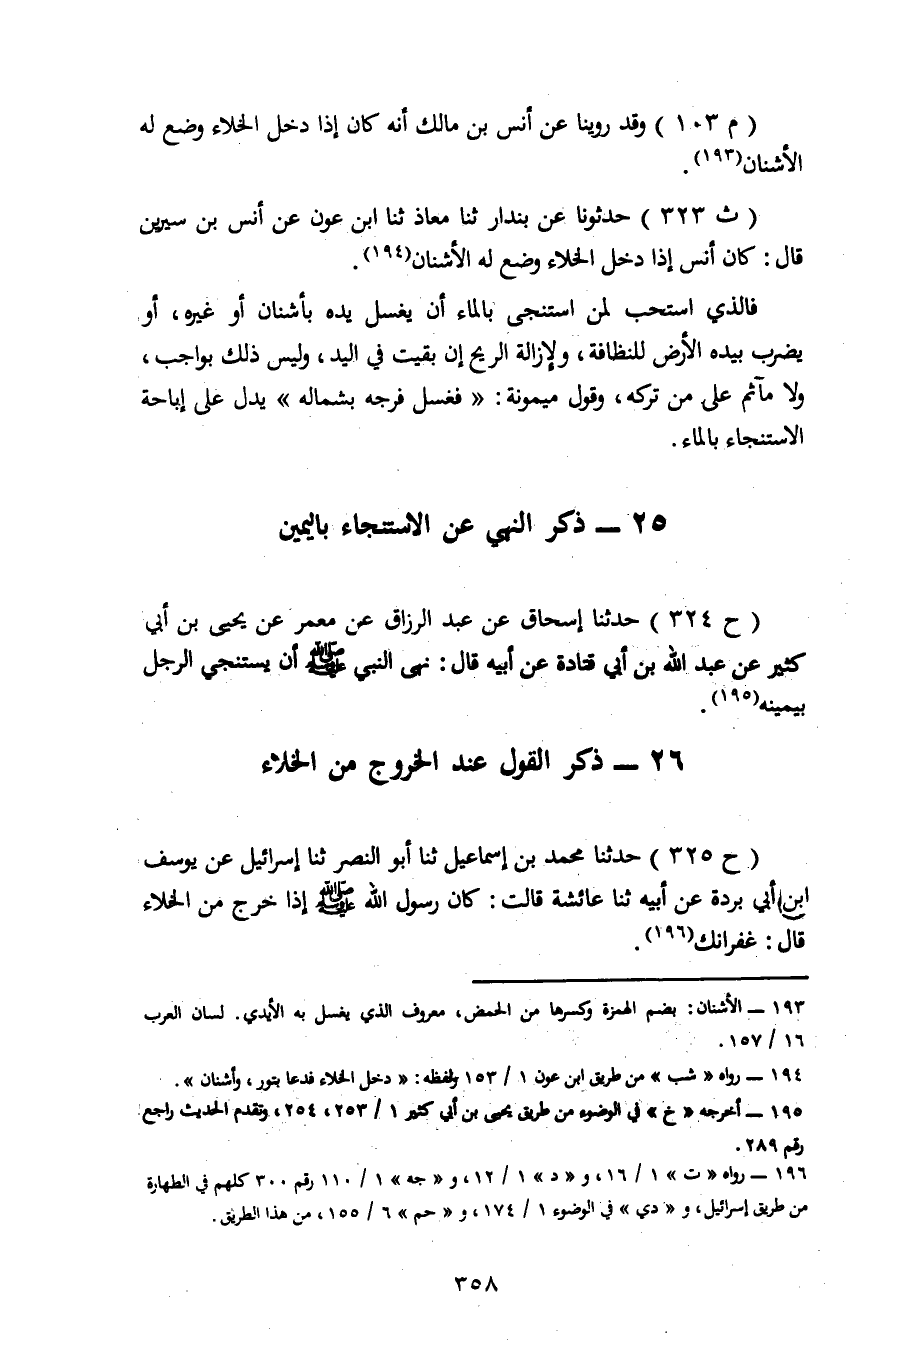 ( م ١٠٣ ) وقد روينا عن أنس بن مالك أنه كان إذا دخل الخلاء وضع له
الأشنان(١٩٣) .
( ث ٣٢٣ ) حدثونا عن بندار ثنا معاذ ثنا ابن عون عن أنس بن سيرين
قال : كان أنس إذا دخل الخلاء وضع له الأشنان(١٩٤) .
فالذي استحب لمن استنجى بالماء أن يغسل يده بأشنان أو غيره ، أو
يضرب بيده الأرض للنظافة ، ولإزالة الريح إن بقيت في اليد ، وليس ذلك بواجب ،
ولا مآثم على من تركه ، وقول ميمونة : « فغسل فرجه بشماله » يدل على إباحة
الاستنجاء بالماء .
٢٥ ــ ذكر النهي عن الاستنجاء باليمين
( ح ٣٢٤ ) حدثنا إسحاق عن عبد الرزاق عن معمر عن يحيى بن أبي
كثير عن عبد الله بن أبي قتادة عن أبيه قال : نهى النبي ﷺ أن يستنجي الرجل
بيمينه(١٩٥) .
٢٦ ــ ذكر القول عند الخروج من الخلاء
( ح ٣٢٥ ) حدثنا محمد بن إسماعيل ثنا أبو النصر ثنا إسرائيل عن يوسف
ابن أبي بردة عن أبيه ثنا عائشة قالت : كان رسول الله ﷺ إذا خرج من الخلاء
قال : غفرانك(١٩٦) .
١٩٣ ــ الأشنان : بضم الهمزة وكسرها من الحمض ، معروف الذي يغسل به الأيدي . لسان العرب
١٦ / ١٥٧ .
١٩٤ ــ رواه « شب » من طريق ابن عون ١ / ١٥٣ ولفظه : « دخل الخلاء فدعا بتور ، وأشنان » .
١٩٥ ــ أخرجه « خ » في الوضوء من طريق يحيى بن أبي كثير ١ / ٢٥٣ ، ٢٥٤ ، وتقدم الحديث راجع
رقم ٢٨٩ .
١٩٦ ــ رواه « ت » ١ / ١٦ ، و « د » ١ / ١٢ ، و « جه » ١ / ١١٠ رقم ٣٠٠ كلهم في الطهارة
من طريق إسرائيل ، و « دي » في الوضوء ١ / ١٧٤ ، و « حم » ٦ / ١٥٥ ، من هذا الطريق .
٣٥٨